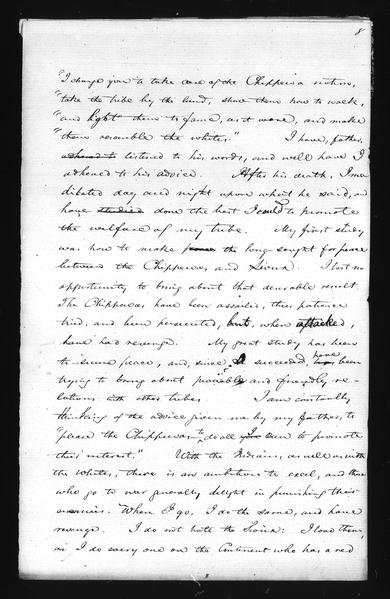 8
"I charge you to take care of the Chippewa nation,
"take the tribe by the hand, show them how to walk,
"and light them to fame, as it were, and make
"them resemble the whites." I have, father,
listened to his words, and well have I
adhered to his advice. After his death, I me
ditated day and night upon what he said, and
have studied done the best I could to promote
the welfare of my tribe. My first study
was how to make the long sought for peace
between the Chippewas and Sioux. I lost no
opportunity to bring about that desirable result.
The Chippewas have been assailed, their patience
tried, and been persecuted, but, when attacked,
have had revenge. My great study has been
to secure peace, and, since I succeeded, have been
trying to bring about peaceable and friendly re-
lations with other tribes. I am constantly
thinking of the advice given me by my father, to
"please the Chippewas to do all I can to promote
their interest." With the Indians, as well as with
the whites, there is an ambition to excel, and those
who go to war generally delight in punishing their
enemies. When I go, I do the same, and have
revenge. I do not hate the Sioux: I love them,
as I do every one on the Continent who has a red